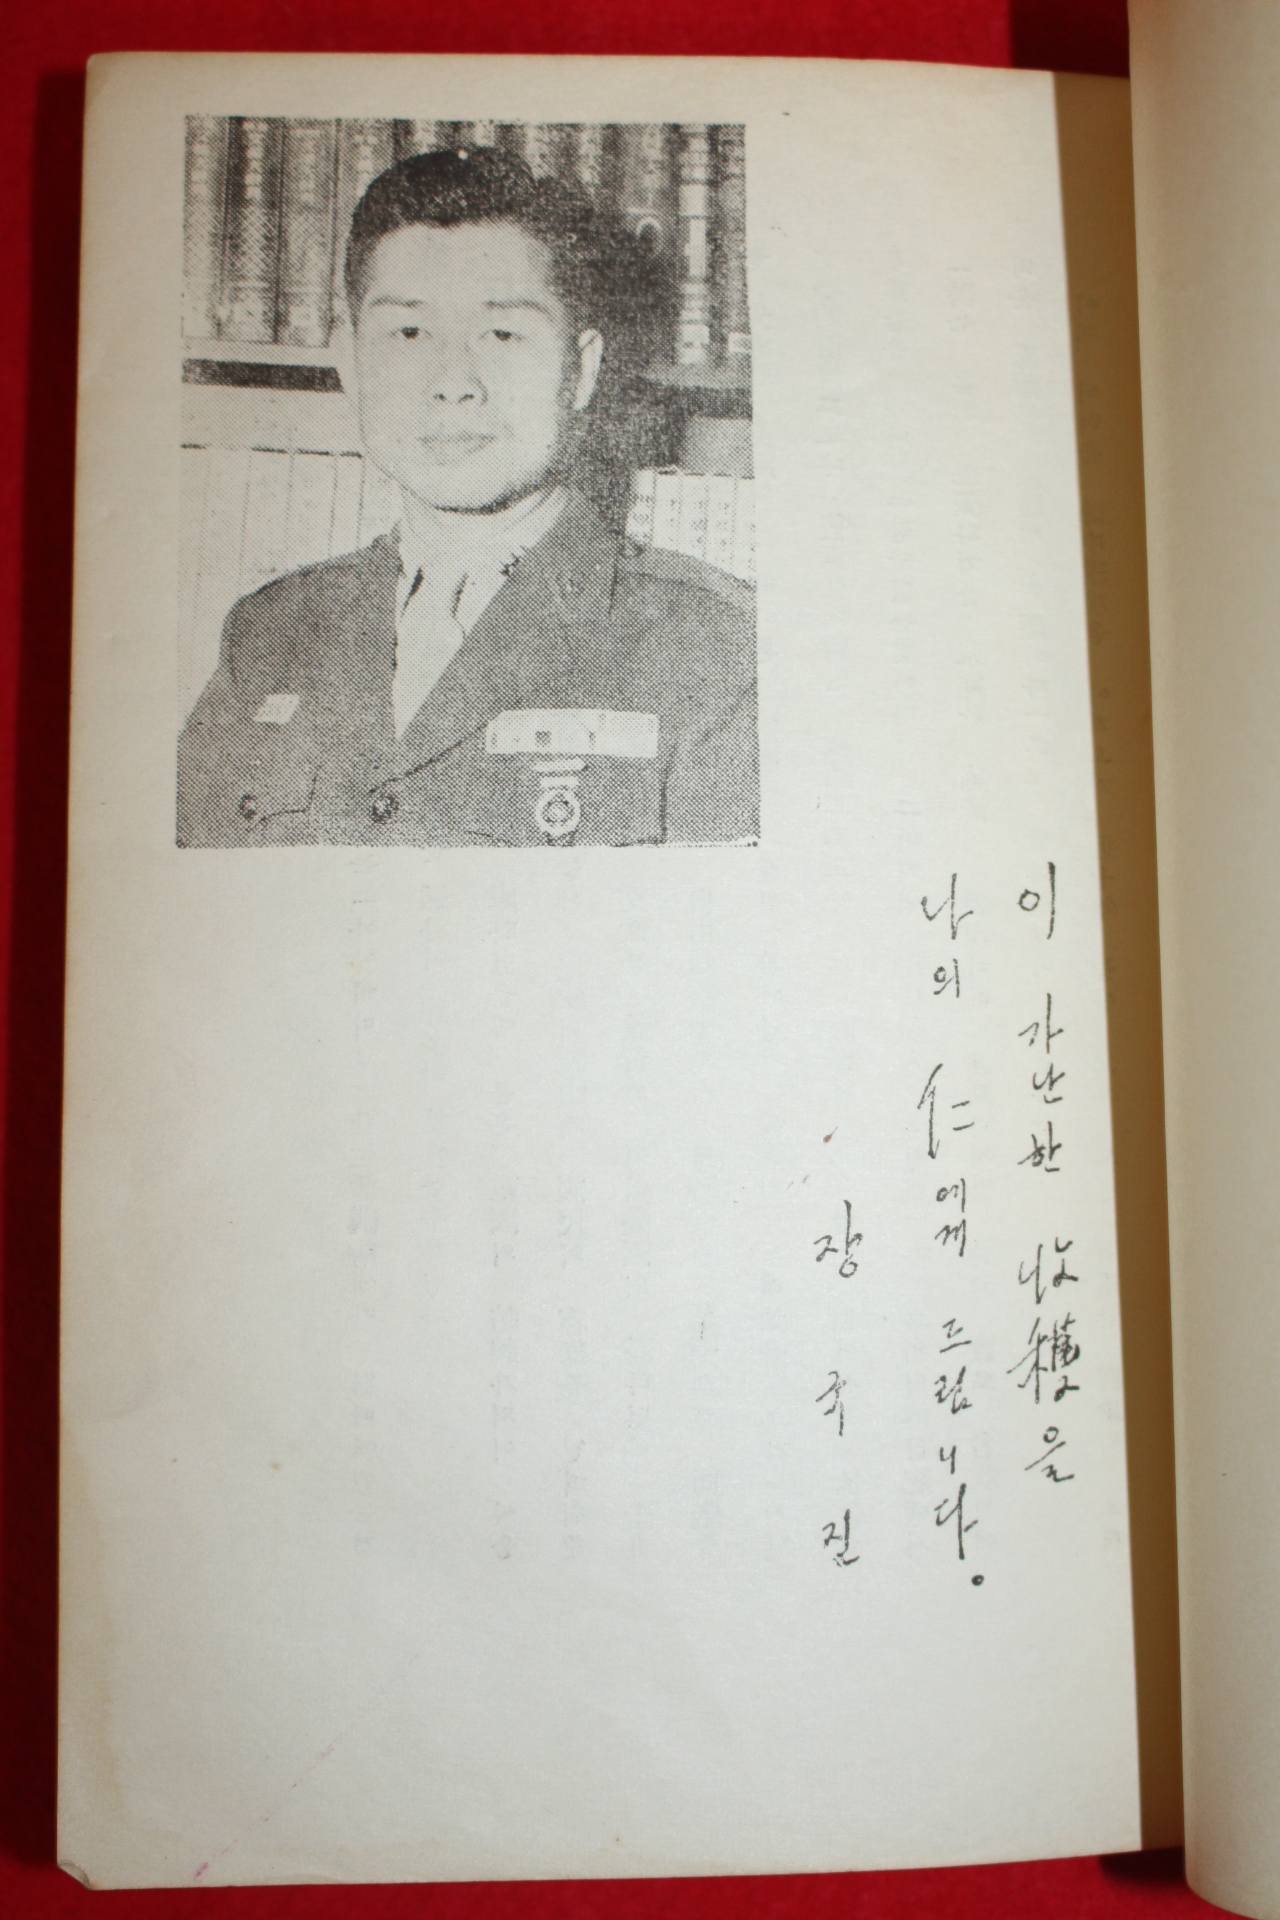 이 가난한 收穫을
나의 仁에게 드립니다。
장 국 진